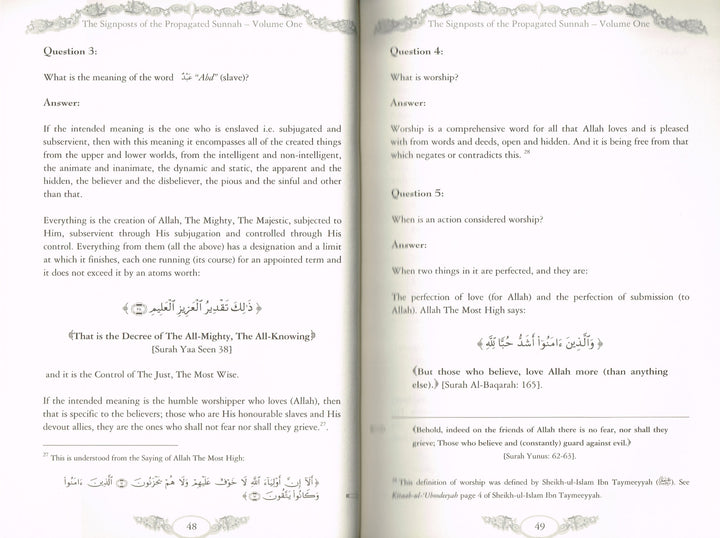 The Signposts of the Propagated Sunnah – Volume One
Question 3:
What is the meaning of the word عَبْدٌ "Abd" (slave)?
Answer:
If the intended meaning is the one who is enslaved i.e. subjugated and
subservient, then with this meaning it encompasses all of the created things
from the upper and lower worlds, from the intelligent and non-intelligent,
the animate and inanimate, the dynamic and static, the apparent and the
hidden, the believer and the disbeliever, the pious and the sinful and other
than that.
Everything is the creation of Allah, The Mighty, The Majestic, subjected to
Him, subservient through His subjugation and controlled through His
control. Everything from them (all the above) has a designation and a limit
at which it finishes, each one running (its course) for an appointed term and
it does not exceed it by an atoms worth:
﴿ ذَٰلِكَ تَقْدِيرُ ٱلْعَزِيزِ ٱلْعَلِيمِ ﴾
﴾That is the Decree of The All-Mighty, The All-Knowing﴿
[Surah Yaa Seen 38]
and it is the Control of The Just, The Most Wise.
If the intended meaning is the humble worshipper who loves (Allah), then
that is specific to the believers; those who are His honourable slaves and His
devout allies, they are the ones who shall not fear nor shall they grieve.27.
27 This is understood from the Saying of Allah The Most High:
﴿ أَلَآ إِنَّ أَوْلِيَآءَ ٱللَّهِ لَا خَوْفٌ عَلَيْهِمْ وَلَا هُمْ يَحْزَنُونَ ٱلَّذِينَ ءَامَنُوا۟
وَكَانُوا۟ يَتَّقُونَ ﴾
48
The Signposts of the Propagated Sunnah – Volume One
Question 4:
What is worship?
Answer:
Worship is a comprehensive word for all that Allah loves and is pleased
with from words and deeds, open and hidden. And it is being free from that
which negates or contradicts this. 28
Question 5:
When is an action considered worship?
Answer:
When two things in it are perfected, and they are:
The perfection of love (for Allah) and the perfection of submission (to
Allah). Allah The Most High says:
﴿ وَٱلَّذِينَ ءَامَنُوٓا۟ أَشَدُّ حُبًّا لِّلَّهِ ﴾
﴾But those who believe, love Allah more (than anything
else).﴿ [Surah Al-Baqarah: 165].
﴾Behold, indeed on the friends of Allah there is no fear, nor shall they
grieve; Those who believe and (constantly) guard against evil.﴿
[Surah Yunus: 62-63].
28 This definition of worship was defined by Sheikh-ul-Islam Ibn Taymeeyyah (). See
Kitaab-ul-'Uboodeeyah page 4 of Sheikh-ul-Islam Ibn Taymeeyyah.
49